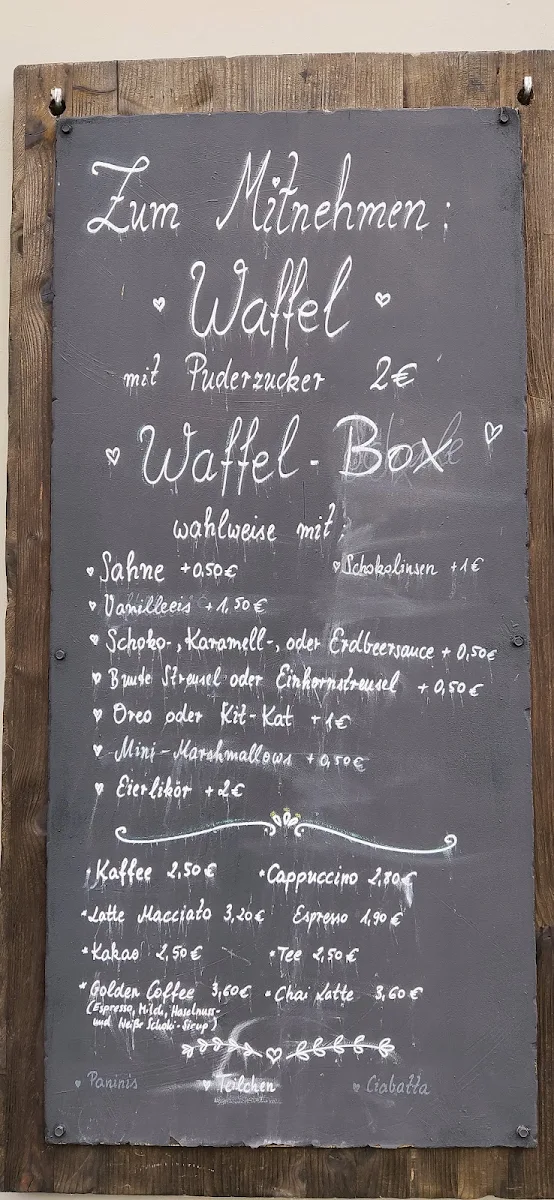 Zum Mitnehmen:
Waffel
mit Puderzucker 2€
Waffel-Box
wahlweise mit:
Sahne +0,50€ Schokolinsen +1€
Vanilleeis +1,50€
Schoko-, Karamell-, oder Erdbeersauce +0,50€
Bunte Streusel oder Einhornstreusel +0,50€
Oreo oder Kit-Kat +1€
Mini-Marshmallows +0,50€
Eierlikör +2€
Kaffee 2,50€ Cappuccino 2,80€
Latte Macciato 3,20€ Espresso 1,90€
Kakao 2,50€ Tee 2,50€
Golden Coffee 3,60€ Chai Latte 3,60€
(Espresso, Milch, Haselnuss-
und Weiße Schoki-Sirup)
Paninis Teilchen Ciabatta